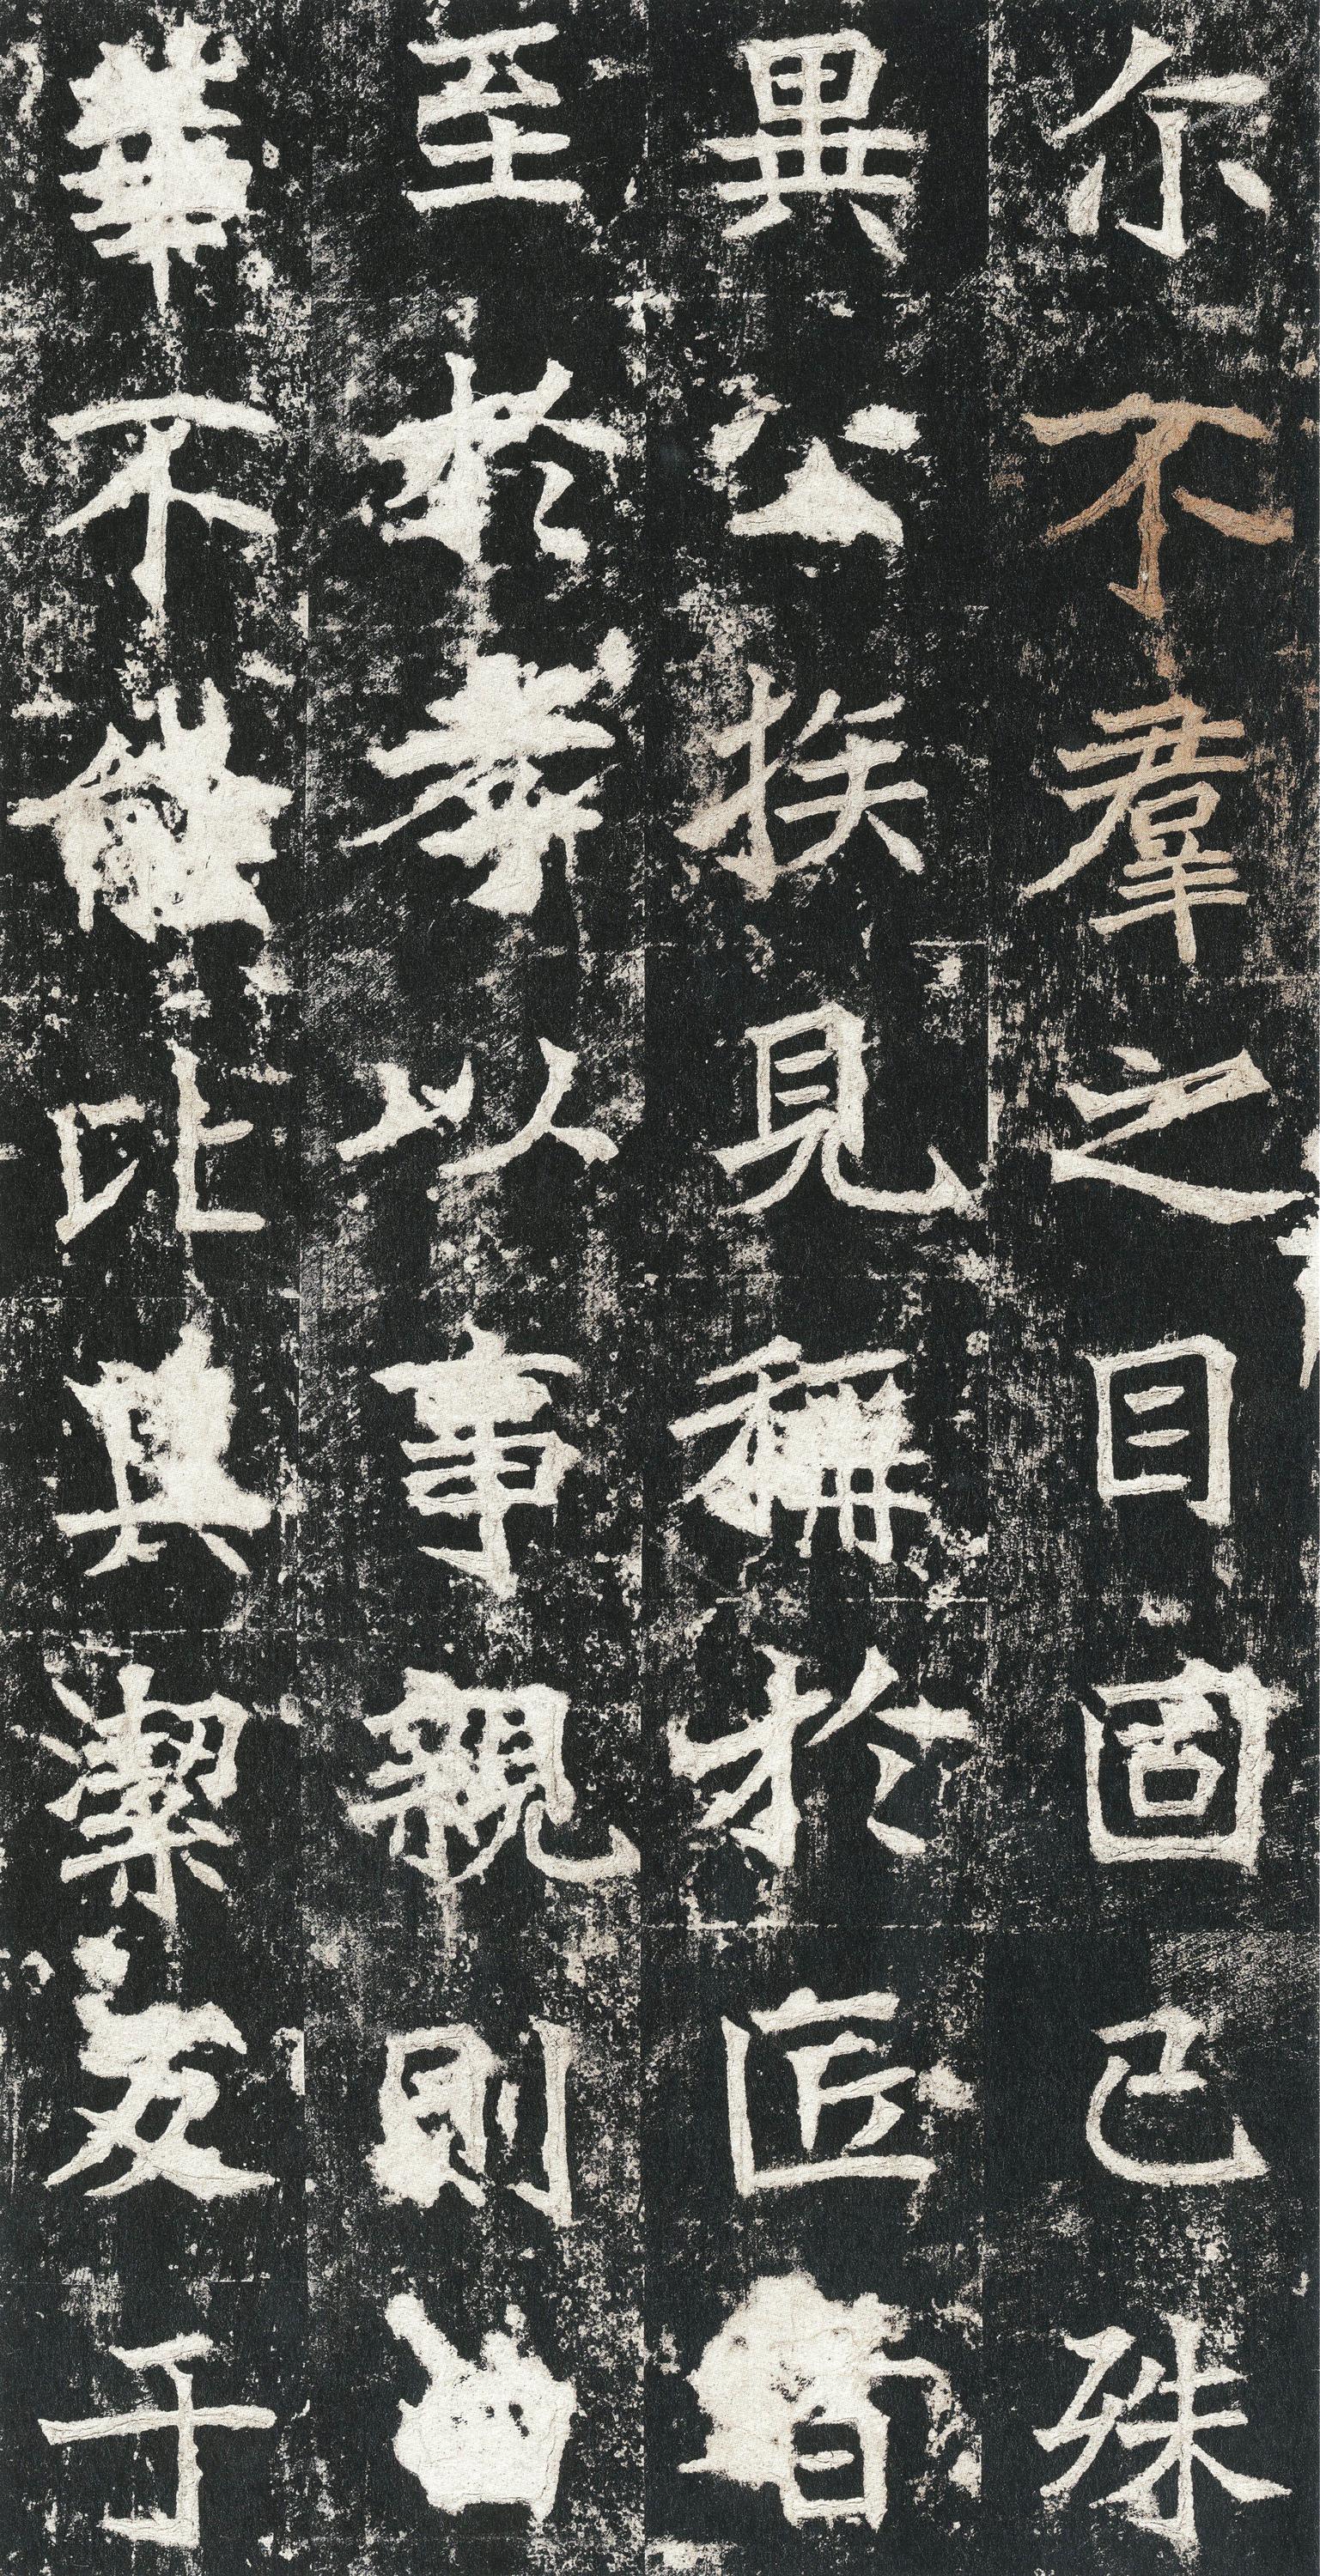 尔不羣之目固已殊
異公族見稱於匠者
至於孝以事親則
華不能比其潔友于